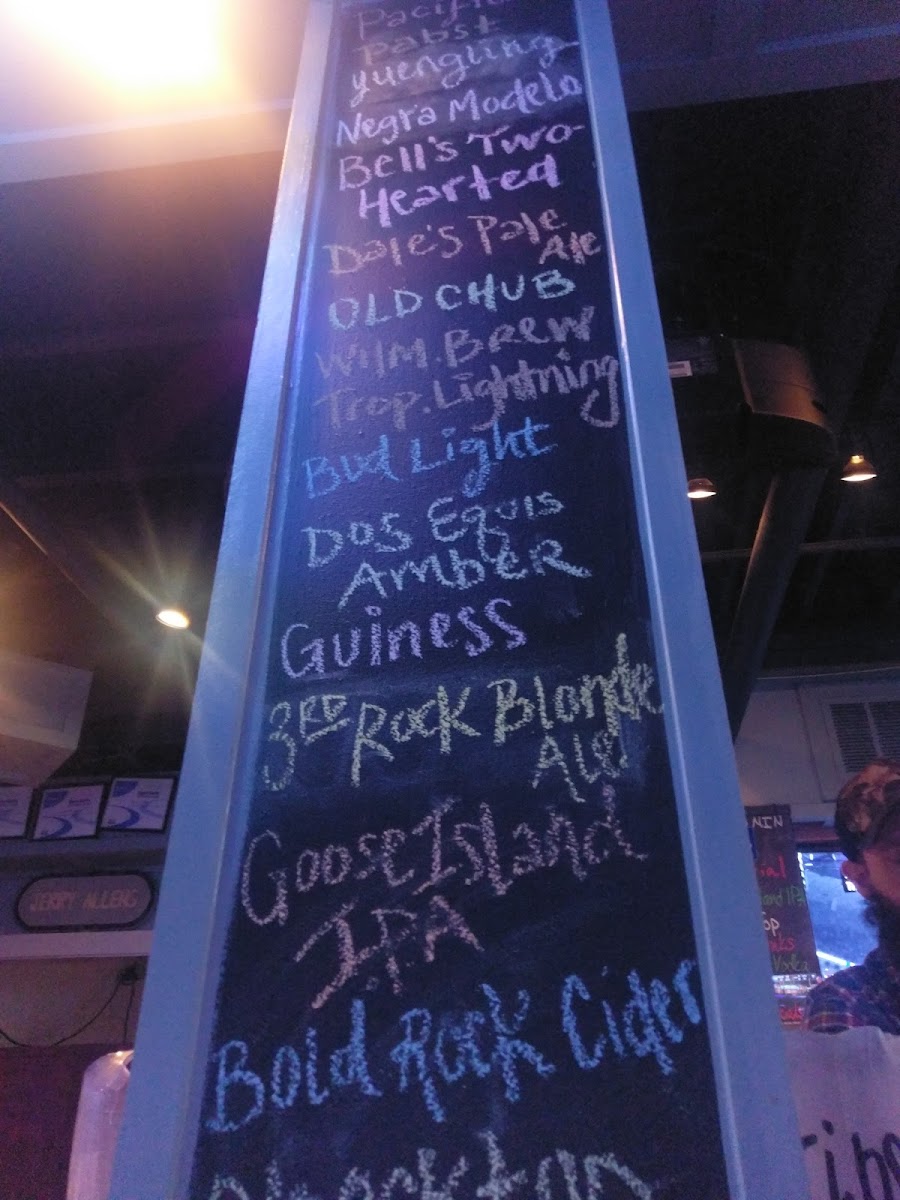 Pacific
Pabst
yuengling
Negra Modelo
Bell's Two-
Hearted
Dale's Pale
Ale
OLD CHUB
Wilm. Brew
Trop. Lightning
Bud Light
Dos Equis
Amber
Guiness
3RD Rock Blonde
Ale
Goose Island
I.P.A
Bold Rock Cider
JERRY ALLENS
NIN